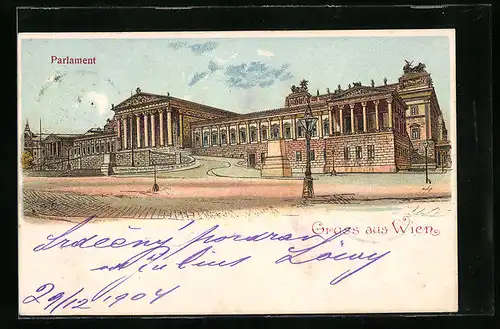 Parlament
Gruss aus Wien
Srdečný pozdrav
Julius Löwy
29/12 1904